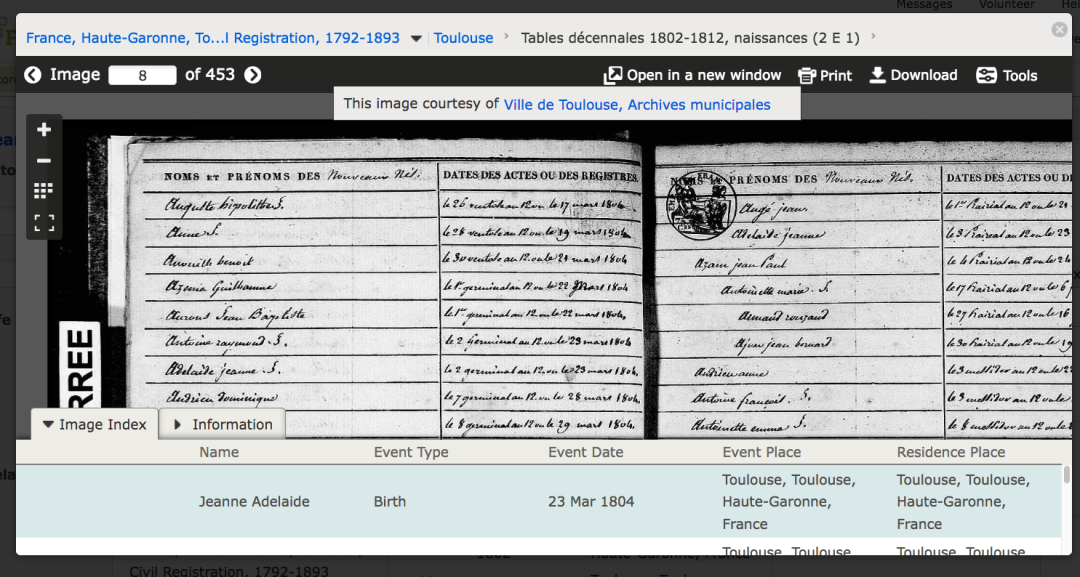 Messages Volunteer
France, Haute-Garonne, To...l Registration, 1792-1893 Toulouse Tables décennales 1802-1812, naissances (2 E 1)
Image 8 of 453 Open in a new window Print Download Tools
This image courtesy of Ville de Toulouse, Archives municipales
NOMS ET PRÉNOMS DES Nouveaux Nés. DATES DES ACTES OU DES REGISTRES.
Auguste hipolitte S. le 26 ventose an 12 ou le 17 mars 1804.
Anne S. le 28 ventose an 12 ou le 19 mars 1804
benoit le 30 ventose an 12 ou le 21 mars 1804
Azema Guilhaume le 1er germinal an 12 ou le 22 Mars 1804
Jean Baptiste le 1er germinal an 12 ou le 22 mars 1804.
Antoine raymond S. le 2 Germinal an 12 ou le 23 mars 1804.
Adelaide jeanne S. le 2 germinal an 12 ou le 23 mars 1804.
Andrieu dominique le 7 germinal an 12 ou le 28 mars 1804.
le 8 germinal an 12 ou le 29 mars 1804.
NOMS ET PRÉNOMS DES Nouveaux Nés. DATES DES ACTES OU D
Augé jean. le 1er Prairial an 12 ou le
Adelaide jeanne le 3 Prairial an 12 ou le 23
Azam jean Paul le 4 Prairial an 12 ou le
Antoinette marie. S. le 17 Prairial an 12 ou le 6
Arnaud le 27 Prairial an 12 ou le 16
jean bernard le 30 Prairial an 12 ou le 19
Andrieu anne le 3 messidor an 12 ou le
Antoine françois. S. le 3 messidor an 12 ou le
Antoinette emma S. le 8 messidor an 12 ou le
RREE
Image Index Information
Name Event Type Event Date Event Place Residence Place
Jeanne Adelaide Birth 23 Mar 1804 Toulouse, Toulouse, Haute-Garonne, France Toulouse, Toulouse, Haute-Garonne, France
Toulouse, Toulouse Toulouse, Toulouse
Civil Registration, 1792-1893